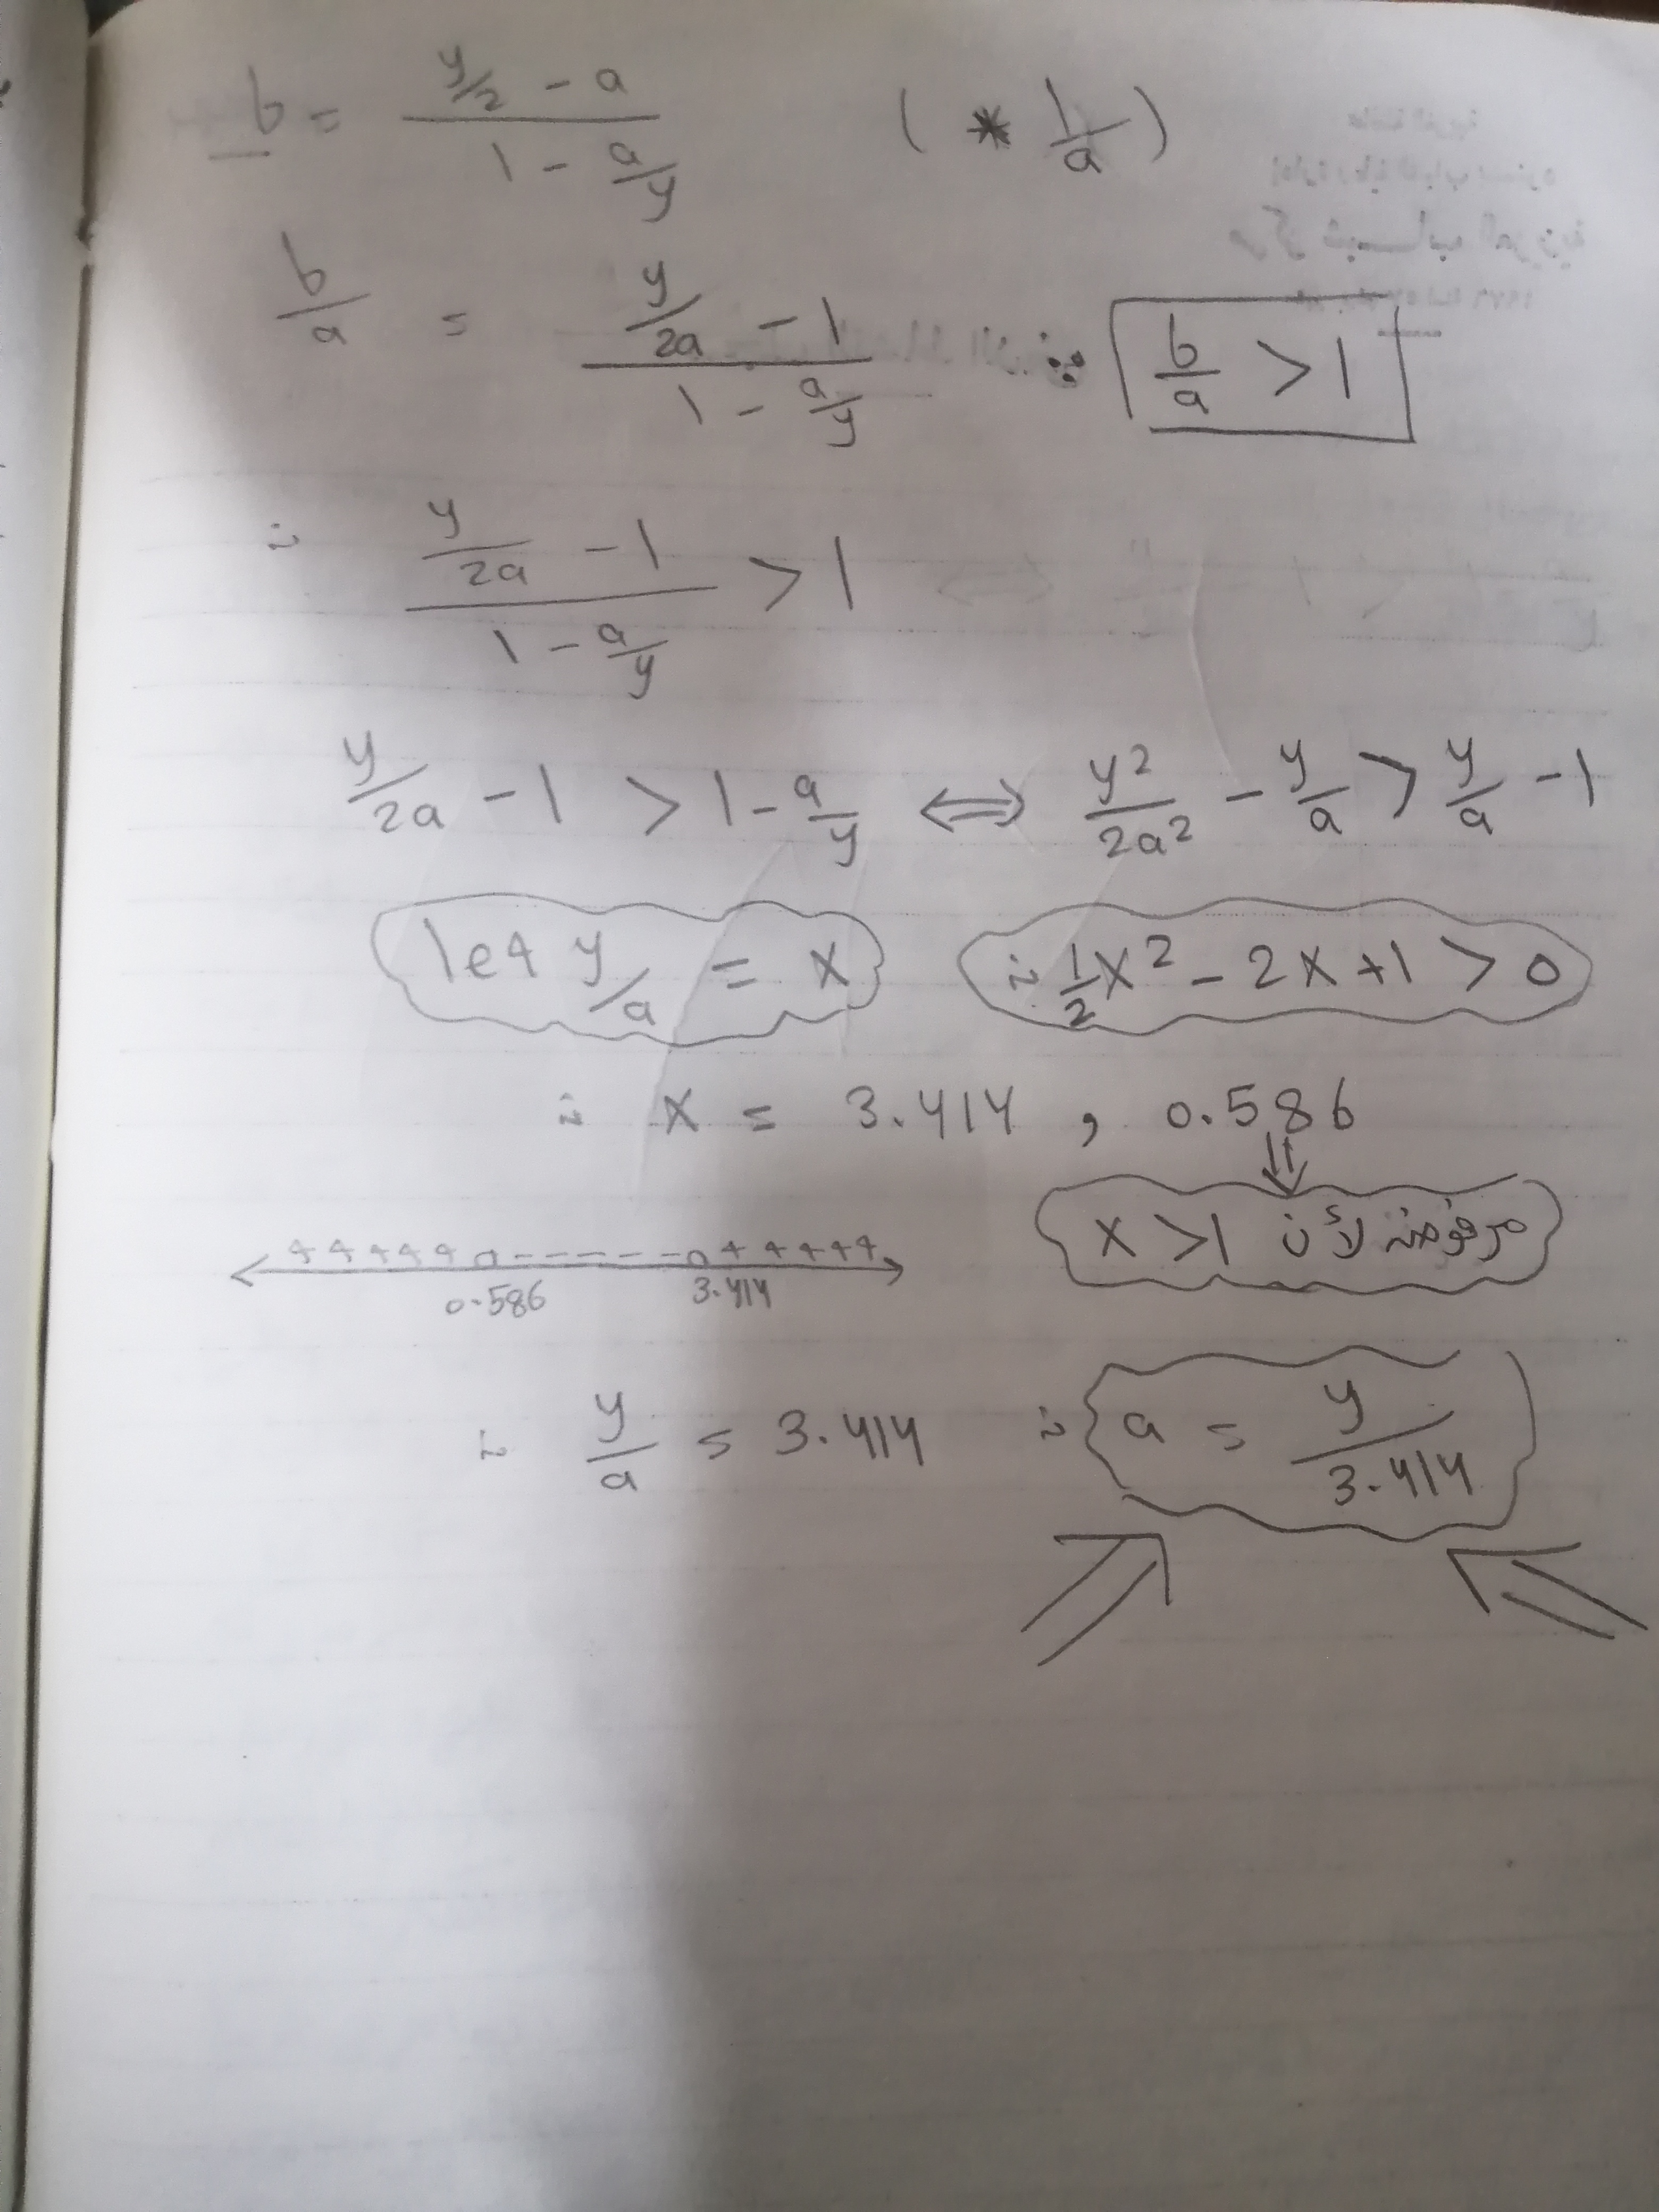 b = (y/2 - a) / (1 - a/y) ( * 1/a )
b/a = (y/2a - 1) / (1 - a/y) ∵ b/a > 1
∴ (y/2a - 1) / (1 - a/y) > 1
y/2a - 1 > 1 - a/y ⟺ y²/2a² - y/a > y/a - 1
let y/a = x ∴ 1/2 x² - 2x + 1 > 0
∴ x = 3.414 , 0.586
مرفوضة لأن x > 1
+ + + + + - - - - - - + + + + +
0.586 3.414
∴ y/a = 3.414 ∴ a = y/3.414